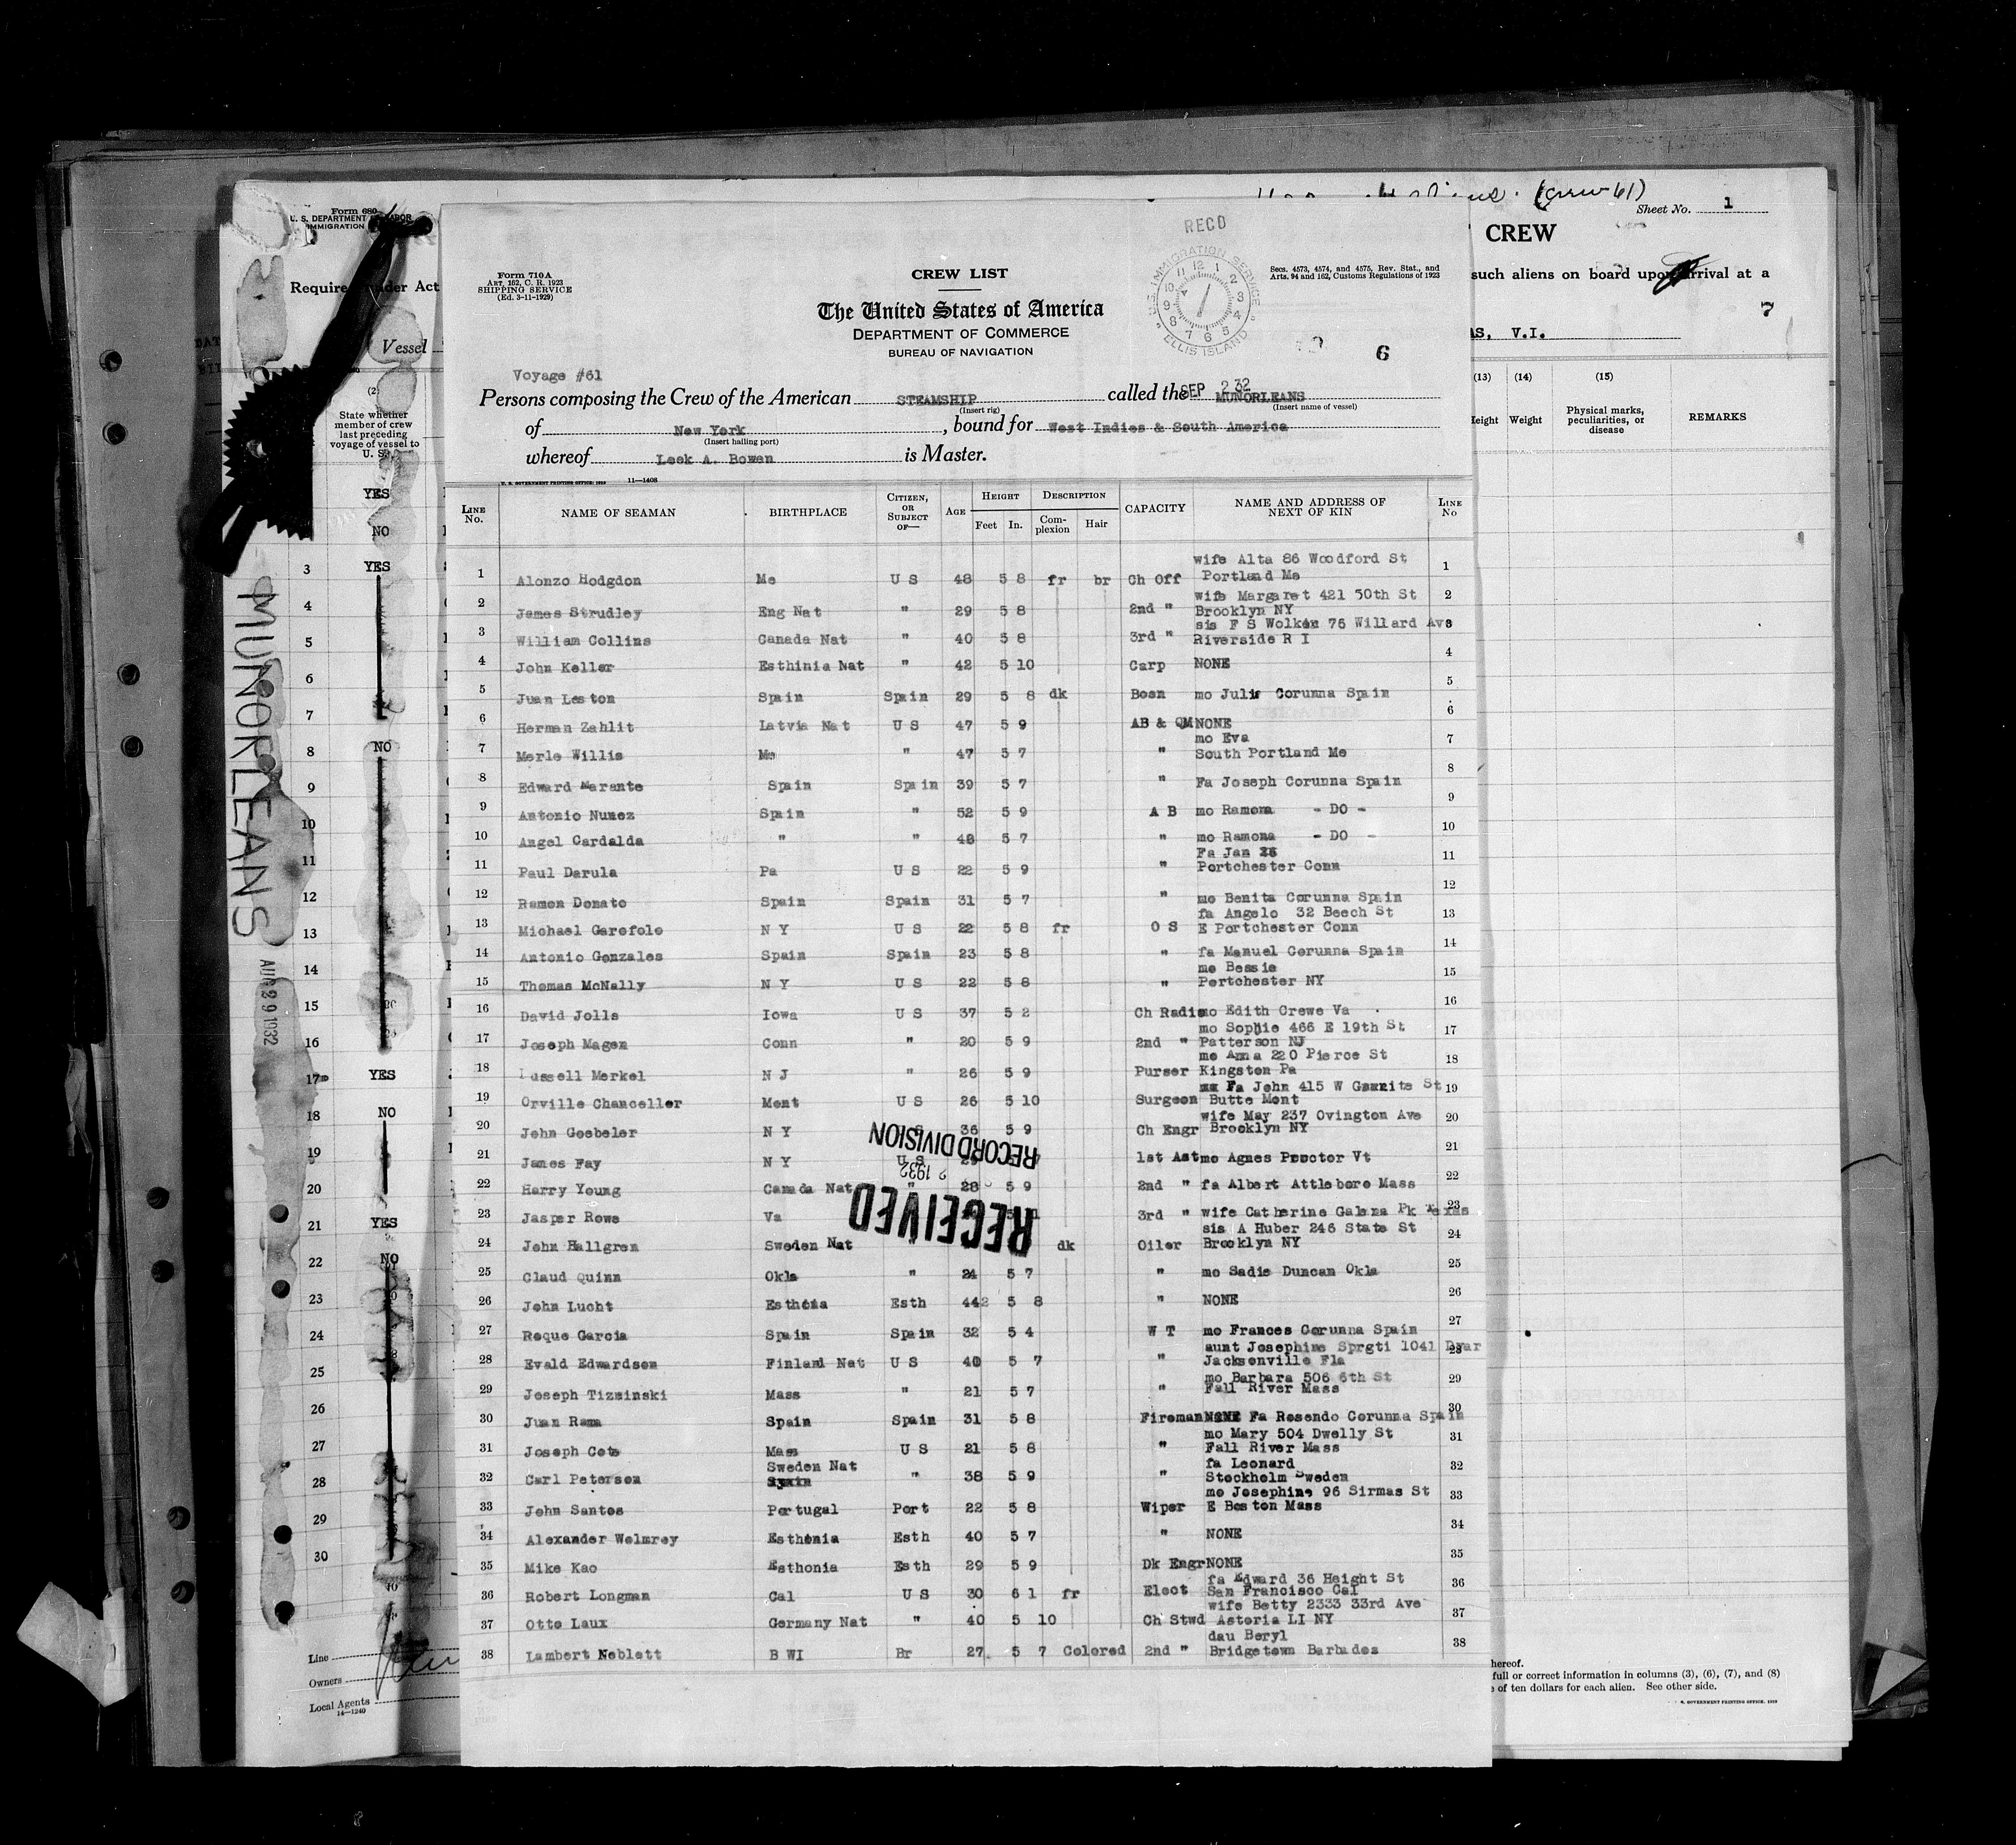 (crew 61)
Sheet No. 1
CREW
such aliens on board upon arrival at a
7
V.I.
(13) (14) (15)
Weight
Physical marks, peculiarities, or disease
REMARKS
Form 680
U. S. DEPARTMENT OF LABOR
IMMIGRATION
Vessel
State whether member of crew last preceding voyage of vessel to U. S.
YES
NO
3 YES
4
5
6
7
8 NO
9
10
11
12
13
14
15
16
17 YES
18 NO
19
20
21 YES
22 NO
23
24
25
26
27
28
29
30
Line
Owners
Local Agents
14—1240
MUNORLEANS
AUG 29 1932
RECD
U.S. IMMIGRATION SERVICE
ELLIS ISLAND
SEP 2 32
Form 710A
ART. 162, C. R. 1923
SHIPPING SERVICE
(Ed. 3-11-1929)
CREW LIST
Secs. 4573, 4574, and 4575, Rev. Stat., and
Arts. 94 and 162, Customs Regulations of 1923
The United States of America
DEPARTMENT OF COMMERCE
BUREAU OF NAVIGATION
6
Voyage #61
Persons composing the Crew of the American STEAMSHIP called the MUNORLEANS
(Insert rig) (Insert name of vessel)
of New York, bound for West Indies & South America
(Insert hailing port)
whereof Leek A. Bowen is Master.
U. S. GOVERNMENT PRINTING OFFICE: 1929 11—1408
LINE No. NAME OF SEAMAN BIRTHPLACE CITIZEN, OR SUBJECT OF— AGE HEIGHT Feet In. DESCRIPTION Complexion Hair CAPACITY NAME AND ADDRESS OF NEXT OF KIN LINE No
1 Alonzo Hodgdon Me U S 48 5 8 fr br Ch Off wife Alta 86 Woodford St Portland Me 1
2 James Strudley Eng Nat " 29 5 8 2nd " wife Margaret 421 50th St Brooklyn NY 2
3 William Collins Canada Nat " 40 5 8 3rd " sis F S Wolken 76 Willard Ave Riverside R I
4 John Keller Esthinia Nat " 42 5 10 Carp NONE 4
5 Juan Leston Spain Spain 29 5 8 dk Bosn mo Julia Corunna Spain 5
6 Herman Zahlit Latvia Nat U S 47 5 9 AB & QM NONE 6
7 Merle Willis Me " 47 5 7 " mo Eva South Portland Me 7
8 Edward Marante Spain Spain 39 5 7 " Fa Joseph Corunna Spain 8
9 Antonio Nunez Spain " 52 5 9 A B mo Ramona - DO - 9
10 Angel Cardalda " " 48 5 7 " mo Ramona - DO - 10
11 Paul Darula Pa U S 22 5 9 " Fa Jan Portchester Conn 11
12 Ramon Donato Spain Spain 31 5 7 " mo Benita Corunna Spain 12
13 Michael Garofolo N Y U S 22 5 8 fr O S fa Angelo 32 Beech St E Portchester Conn 13
14 Antonio Gonzales Spain Spain 23 5 8 " fa Manuel Corunna Spain 14
15 Thomas McNally N Y U S 22 5 8 " mo Bessie Portchester NY 15
16 David Jolls Iowa U S 37 5 2 Ch Radio mo Edith Crewe Va 16
17 Joseph Magen Conn " 20 5 9 2nd " mo Sophie 466 E 19th St Patterson NJ 17
18 Russell Merkel N J " 26 5 9 Purser mo Anna 220 Pierce St Kingston Pa 18
19 Orville Chanceller Mont U S 26 5 10 Surgeon Fa John 415 W Granite St Butte Mont 19
20 John Goebeler N Y 36 5 9 Ch Engr wife May 237 Ovington Ave Brooklyn NY 20
21 James Fay N Y U S 1st Ast mo Agnes Proctor Vt 21
22 Harry Young Canada Nat " 28 5 9 2nd " fa Albert Attleboro Mass 22
23 Jasper Rowe Va 3rd " wife Catherine Galena Pk Texas 23
24 John Hallgren Sweden Nat dk Oiler sis A Huber 246 State St Brooklyn NY 24
25 Claud Quinn Okla " 24 5 7 " mo Sadie Duncan Okla 25
26 John Lucht Esthonia Esth 442 5 8 " NONE 26
27 Roque Garcia Spain Spain 32 5 4 W T mo Frances Corunna Spain 27
28 Evald Edwardsen Finland Nat U S 40 5 7 " aunt Josephine Sprgti 1041 Jacksonville Fla 28
29 Joseph Tizminski Mass " 21 5 7 " mo Barbara 506 6th St Fall River Mass 29
30 Juan Rama Spain Spain 31 5 8 Fireman NONE Fa Rosendo Corunna Spain 30
31 Joseph Cote Mass U S 21 5 8 " mo Mary 504 Dwelly St Fall River Mass 31
32 Carl Peterson Sweden Nat Spain " 38 5 9 " fa Leonard Stockholm Sweden 32
33 John Santos Portugal Port 22 5 8 Wiper mo Josephine 96 Sirmas St E Boston Mass 33
34 Alexander Welmrey Esthonia Esth 40 5 7 " NONE 34
35 Mike Kao Esthonia Esth 29 5 9 Dk Engr NONE 35
36 Robert Longman Cal U S 30 6 1 fr Elect fa Edward 36 Height St San Francisco Cal 36
37 Otto Laux Germany Nat " 40 5 10 Ch Stwd wife Betty 2333 33rd Ave Astoria LI NY 37
38 Lambert Neblett B WI Br 27 5 7 Colored 2nd " dau Beryl Bridgetown Barbados 38
RECORD DIVISION
2 1932
RECEIVED
hereof.
full or correct information in columns (3), (6), (7), and (8)
of ten dollars for each alien. See other side.
GOVERNMENT PRINTING OFFICE